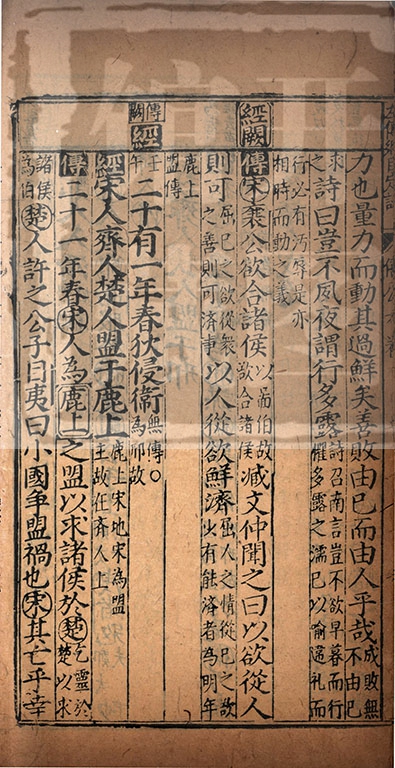 力也量力而動其過鮮矣善敗由己而由人乎哉成敗無不由己
求之詩曰豈不夙夜謂行多露詩召南言豈不欲早暮而行懼多露之濡己以喻違禮而
行必有污辱是亦相時而動之義
經闕傳宋襄公欲合諸侯以霸伯故欲合諸侯臧文仲聞之曰以欲從人
則可屈己之欲從衆之善則可濟事以人從欲鮮濟屈人之情從己之故少有能濟者為明年
鹿上盟傳
傳闕經壬午二十有一年春狄侵衛無傳○為邢故
經宋人齊人楚人盟于鹿上鹿上宋地宋為盟主故在齊人上
傳二十一年春宋人為鹿上之盟以求諸侯於楚乞靈於楚以求
諸侯為伯楚人許之公子目夷曰小國爭盟禍也宋其亡乎幸